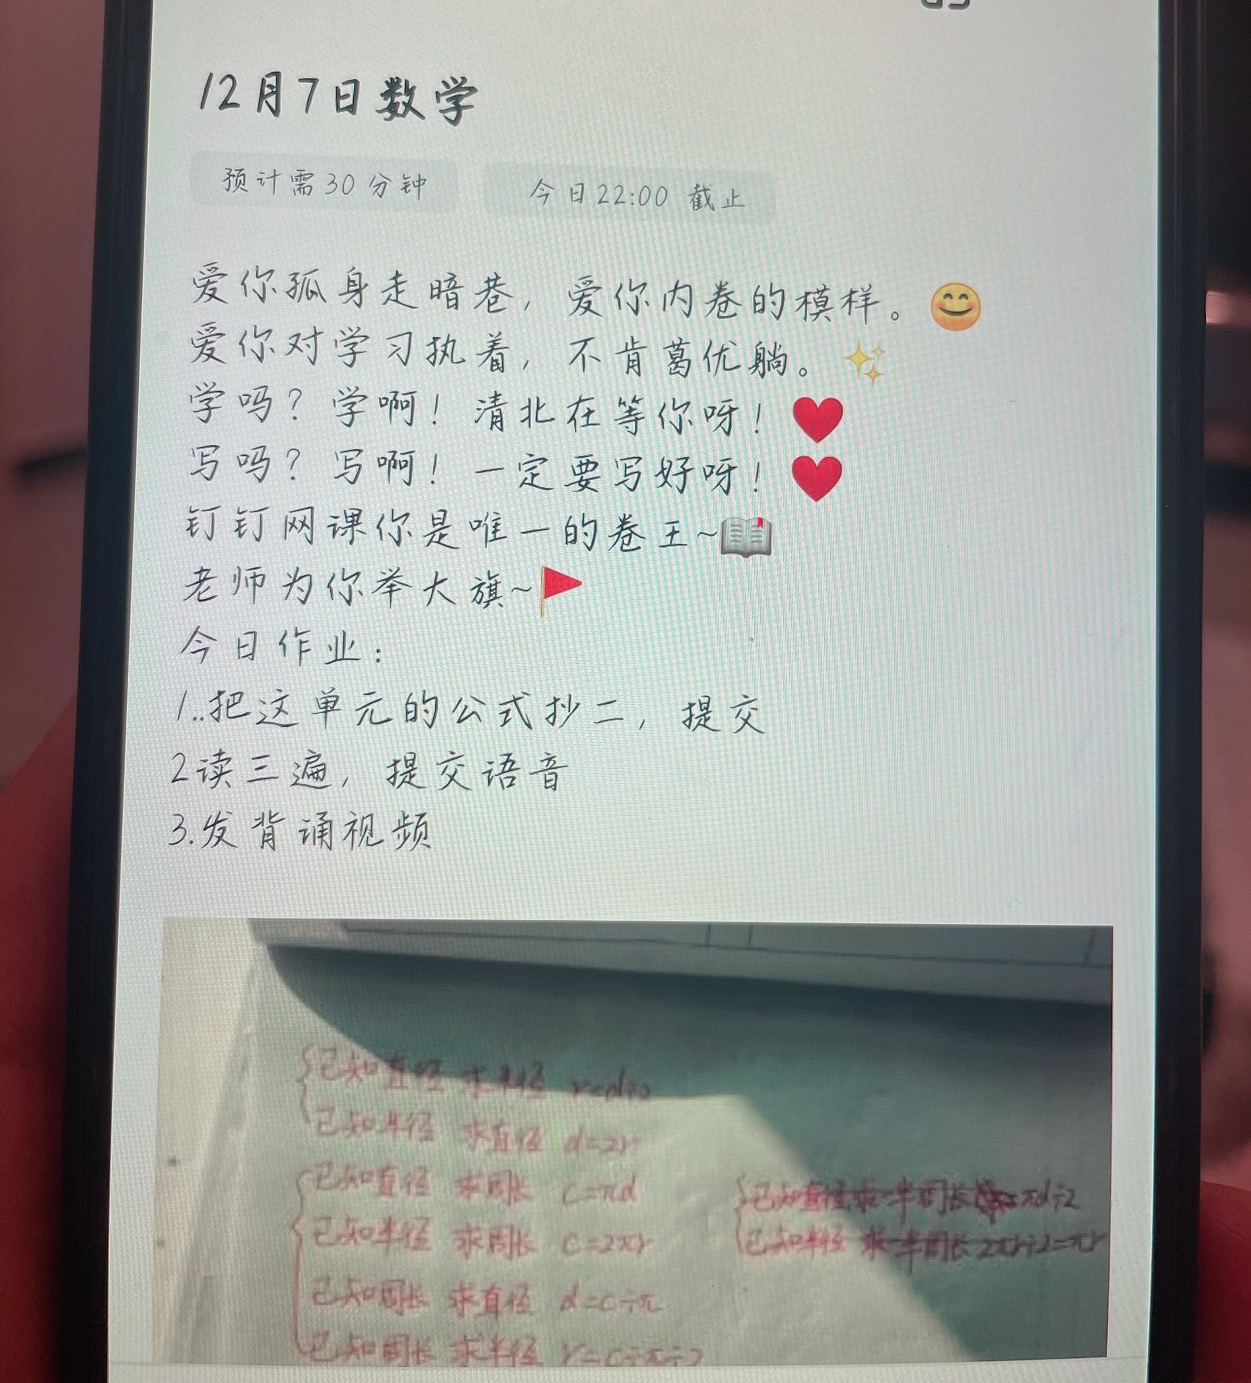 12月7日数学
预计需30分钟 今日22:00 截止
爱你孤身走暗巷，爱你内卷的模样。😊
爱你对学习执着，不肯葛优躺。✨
学吗？学啊！清北在等你呀！❤️
写吗？写啊！一定要写好呀！❤️
钉钉网课你是唯一的卷王~📖
老师为你举大旗~🚩
今日作业：
1..把这单元的公式抄二，提交
2读三遍，提交语音
3.发背诵视频
已知直径 求半径 r=d÷2
已知半径 求直径 d=2r
已知直径 求周长 C=πd
已知半径 求周长 C=2πr
已知周长 求直径 d=C÷π
已知周长 求半径 r=C÷π÷2
已知直径求半周长 πd÷2
已知半径 求半周长 2πr÷2=πr